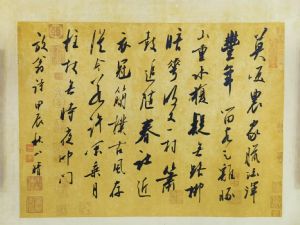 莫笑農家臘酒渾
豐年留客足雞豚
山重水複疑無路柳
暗花明又一村簫
鼓追隨春社近
衣冠簡樸古風存
從今若許閒乘月
拄杖無時夜叩門
放翁詩甲辰秋